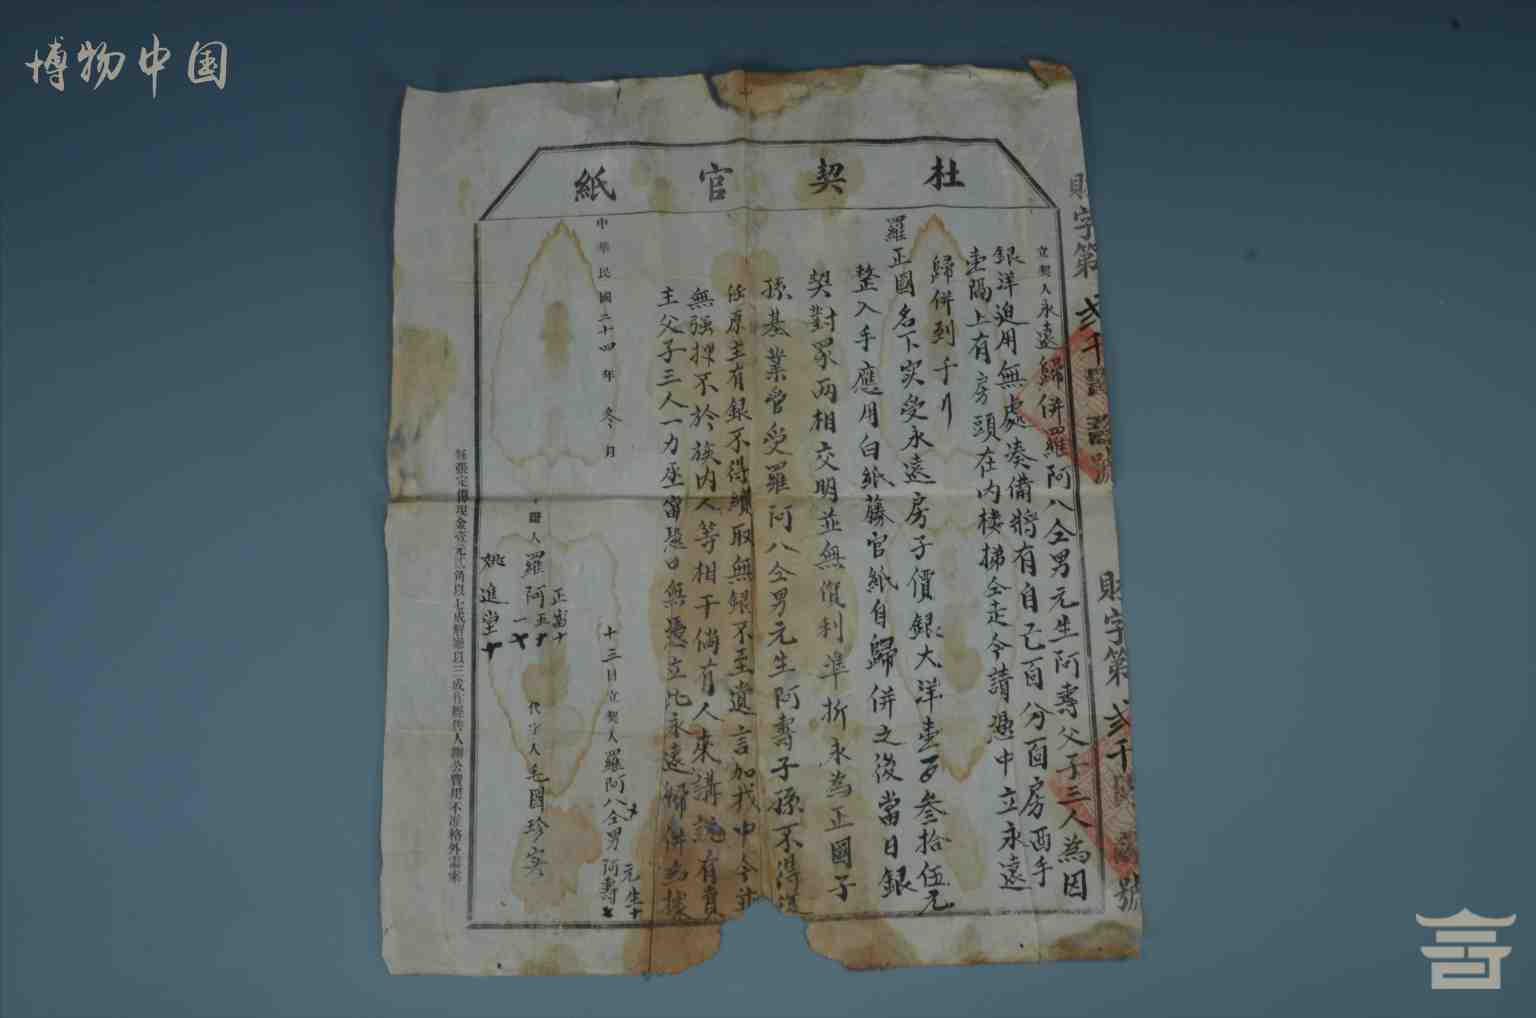 博物中国
杜契官紙
財字第貳千
號
財字第貳千
號
立契人永遠歸併羅阿八仝男元生阿壽父子三人為因
銀洋迫用無處湊備將有自己百分百房西手
壹隔上有房頭在內樓梯仝走今請憑中立永遠
歸併到于
羅正國名下实受永遠房子價銀大洋壹百叁拾伍元
整入手應用白紙藤官紙自歸併之後當日銀
契對眾兩相交明並無復利準折永為正國子
孫基業管受羅阿八仝男元生阿壽子孫不得
任原主有銀不得續取無銀不至遺言加找中今
無強押不於族內人等相干倘有人來講說有賣
主父子三人一力座當恐口無憑立此永遠歸併為據
中華民國二十四年冬月十三日立契人羅阿八仝男元生十阿壽
證人羅阿五十正富十
姚進堂十
代字人毛國珍